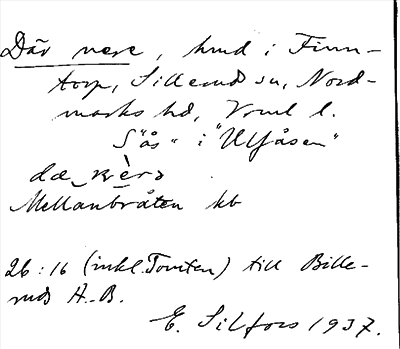 Där nere, hmd i Finn-
torp, Sillerud sn, Nord-
marks hd, Vrml l.
S "ås" i "Ulfåsen"
Mellanbråten kb
26:16 (inkl. Tomten) till Bille-
ruds A.-B.
E. Silfors 1937.